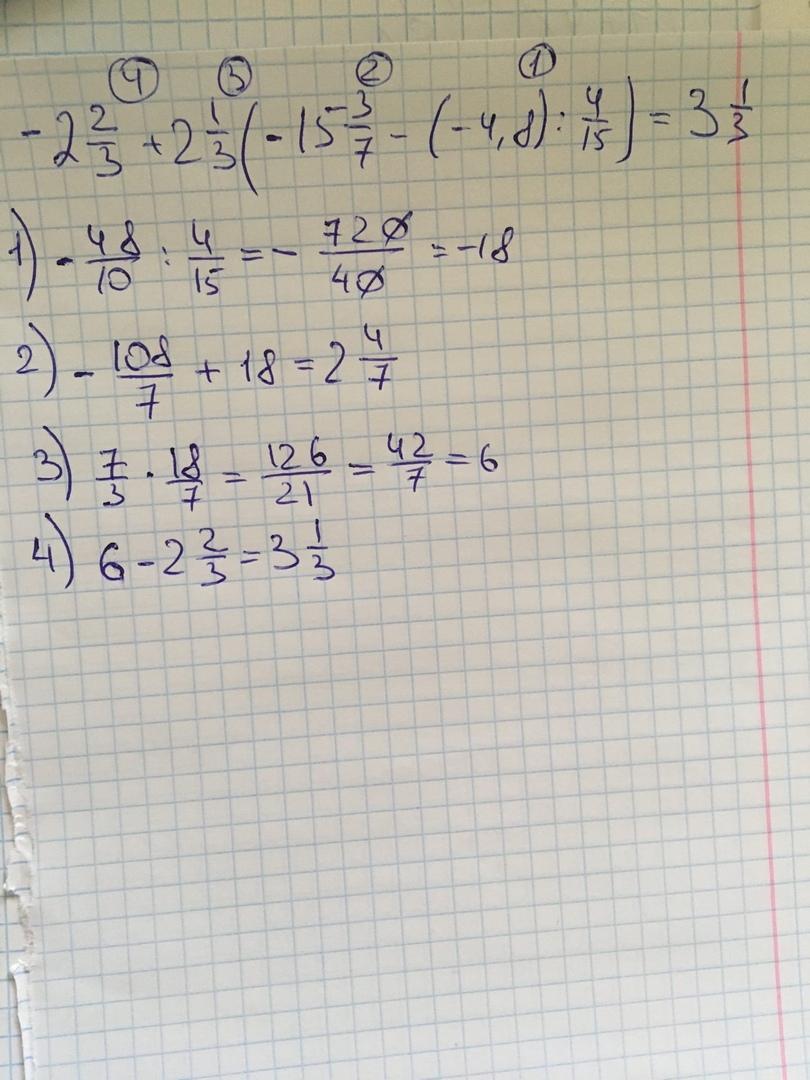 ④ ③ ② ①
-2 2/3 + 2 1/3 (-15 3/7 - (-4,8) : 4/15) = 3 1/3
1) - 48/10 : 4/15 = - 720/40 = -18
2) - 108/7 + 18 = 2 4/7
3) 7/3 · 18/7 = 126/21 = 42/7 = 6
4) 6 - 2 2/3 = 3 1/3